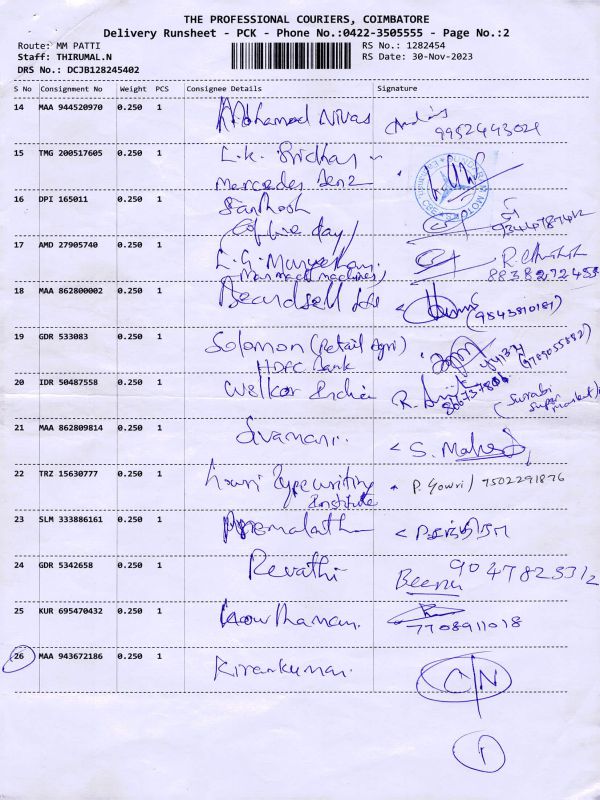 THE PROFESSIONAL COURIERS, COIMBATORE
Delivery Runsheet - PCK - Phone No.:0422-3505555 - Page No.:2
Route: MM PATTI RS No.: 1282454
Staff: THIRUMAL.N RS Date: 30-Nov-2023
DRS No.: DCJB128245402
S No Consignment No Weight PCS Consignee Details Signature
14 MAA 944520970 0.250 1 Mohamed Nivas
9952443029
15 TMG 200517605 0.250 1 L.K. Sridhar
Mercedes Benz
16 DPI 165011 0.250 1 Santhosh
Coffee day/
17 AMD 27905740 0.250 1 L.G.
8838272453
18 MAA 862800002 0.250 1 Beardsell
(9543810181)
19 GDR 533083 0.250 1 Solomon (Retail Agri)
HDFC Bank
20 IDR 50487558 0.250 1 Welkar India
(Surabi Super market)
21 MAA 862809814 0.250 1 Sivamani. S. Mahes
22 TRZ 15630777 0.250 1 Gowri Typewriting P. Gowri / 7502291876
Institute
23 SLM 333886161 0.250 1 Premalatha
24 GDR 5342658 0.250 1 Revathi 9047825312
Beenu
25 KUR 695470432 0.250 1 Gowthaman.
7708911018
26 MAA 943672186 0.250 1 Kirankumar. C/N
1